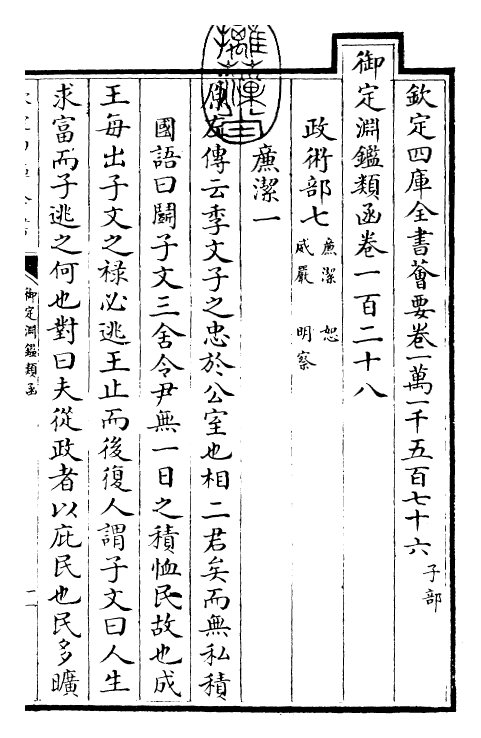 欽定四庫全書薈要卷一萬一千五百七十六 子部
御定淵鑑類函卷一百二十八
政術部七 廉潔 恕 威嚴 明察
廉潔一
傳云季文子之忠於公室也相二君矣而無私積
國語曰鬬子文三舍令尹無一日之積恤民故也成
王每出子文之禄必逃王止而後復人謂子文曰人生
求富而子逃之何也對曰夫從政者以庇民也民多曠
御定淵鑑類函